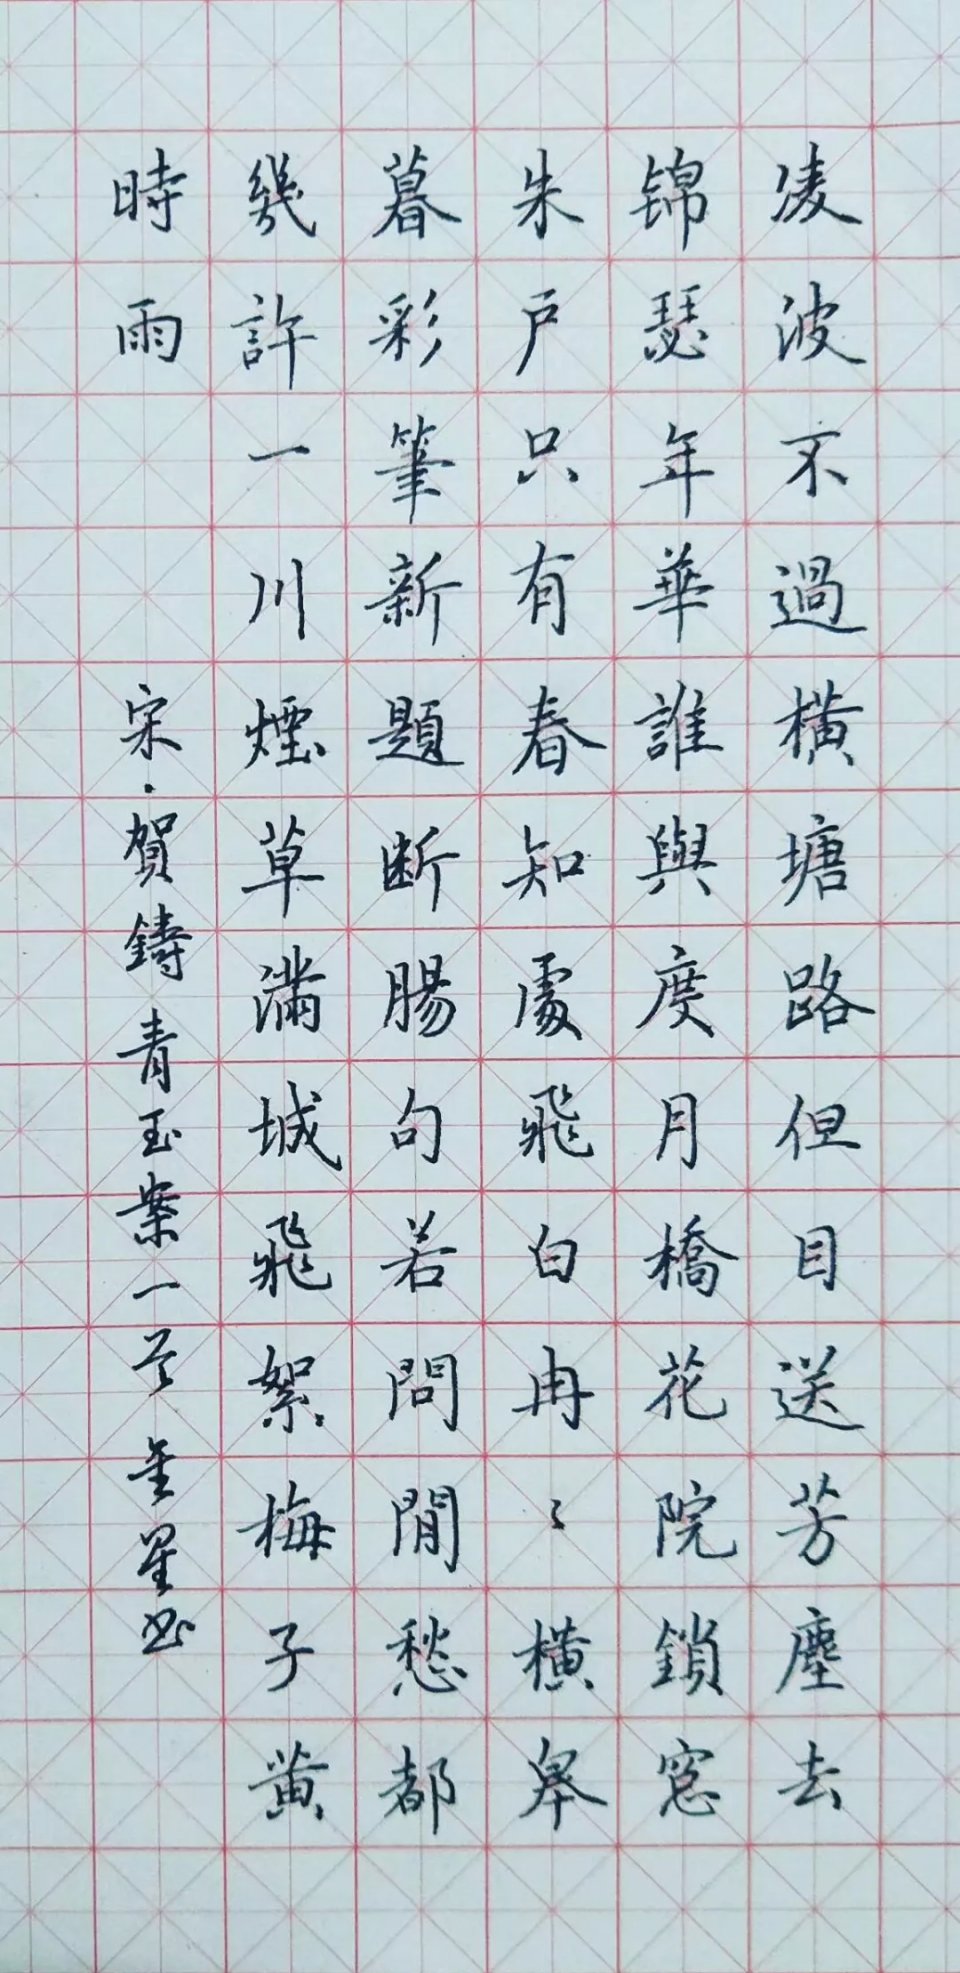 凌波不過橫塘路但目送芳塵去
锦瑟年華誰與度月橋花院鎖窓
朱户只有春知處飛白冉〻橫皋
暮彩筆新題断腸句若問閒愁都
幾許一川煙草滿城飛絮梅子黄
時雨
宋·賀鑄青玉案一首 星书